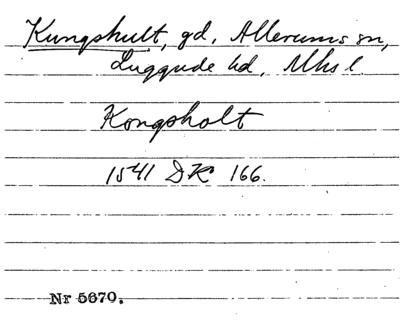 Kungshult, gd, Allerums sn,
Luggude hd, Mhs l.
Kongsholt
1541 DK 166.
Nr 5670.